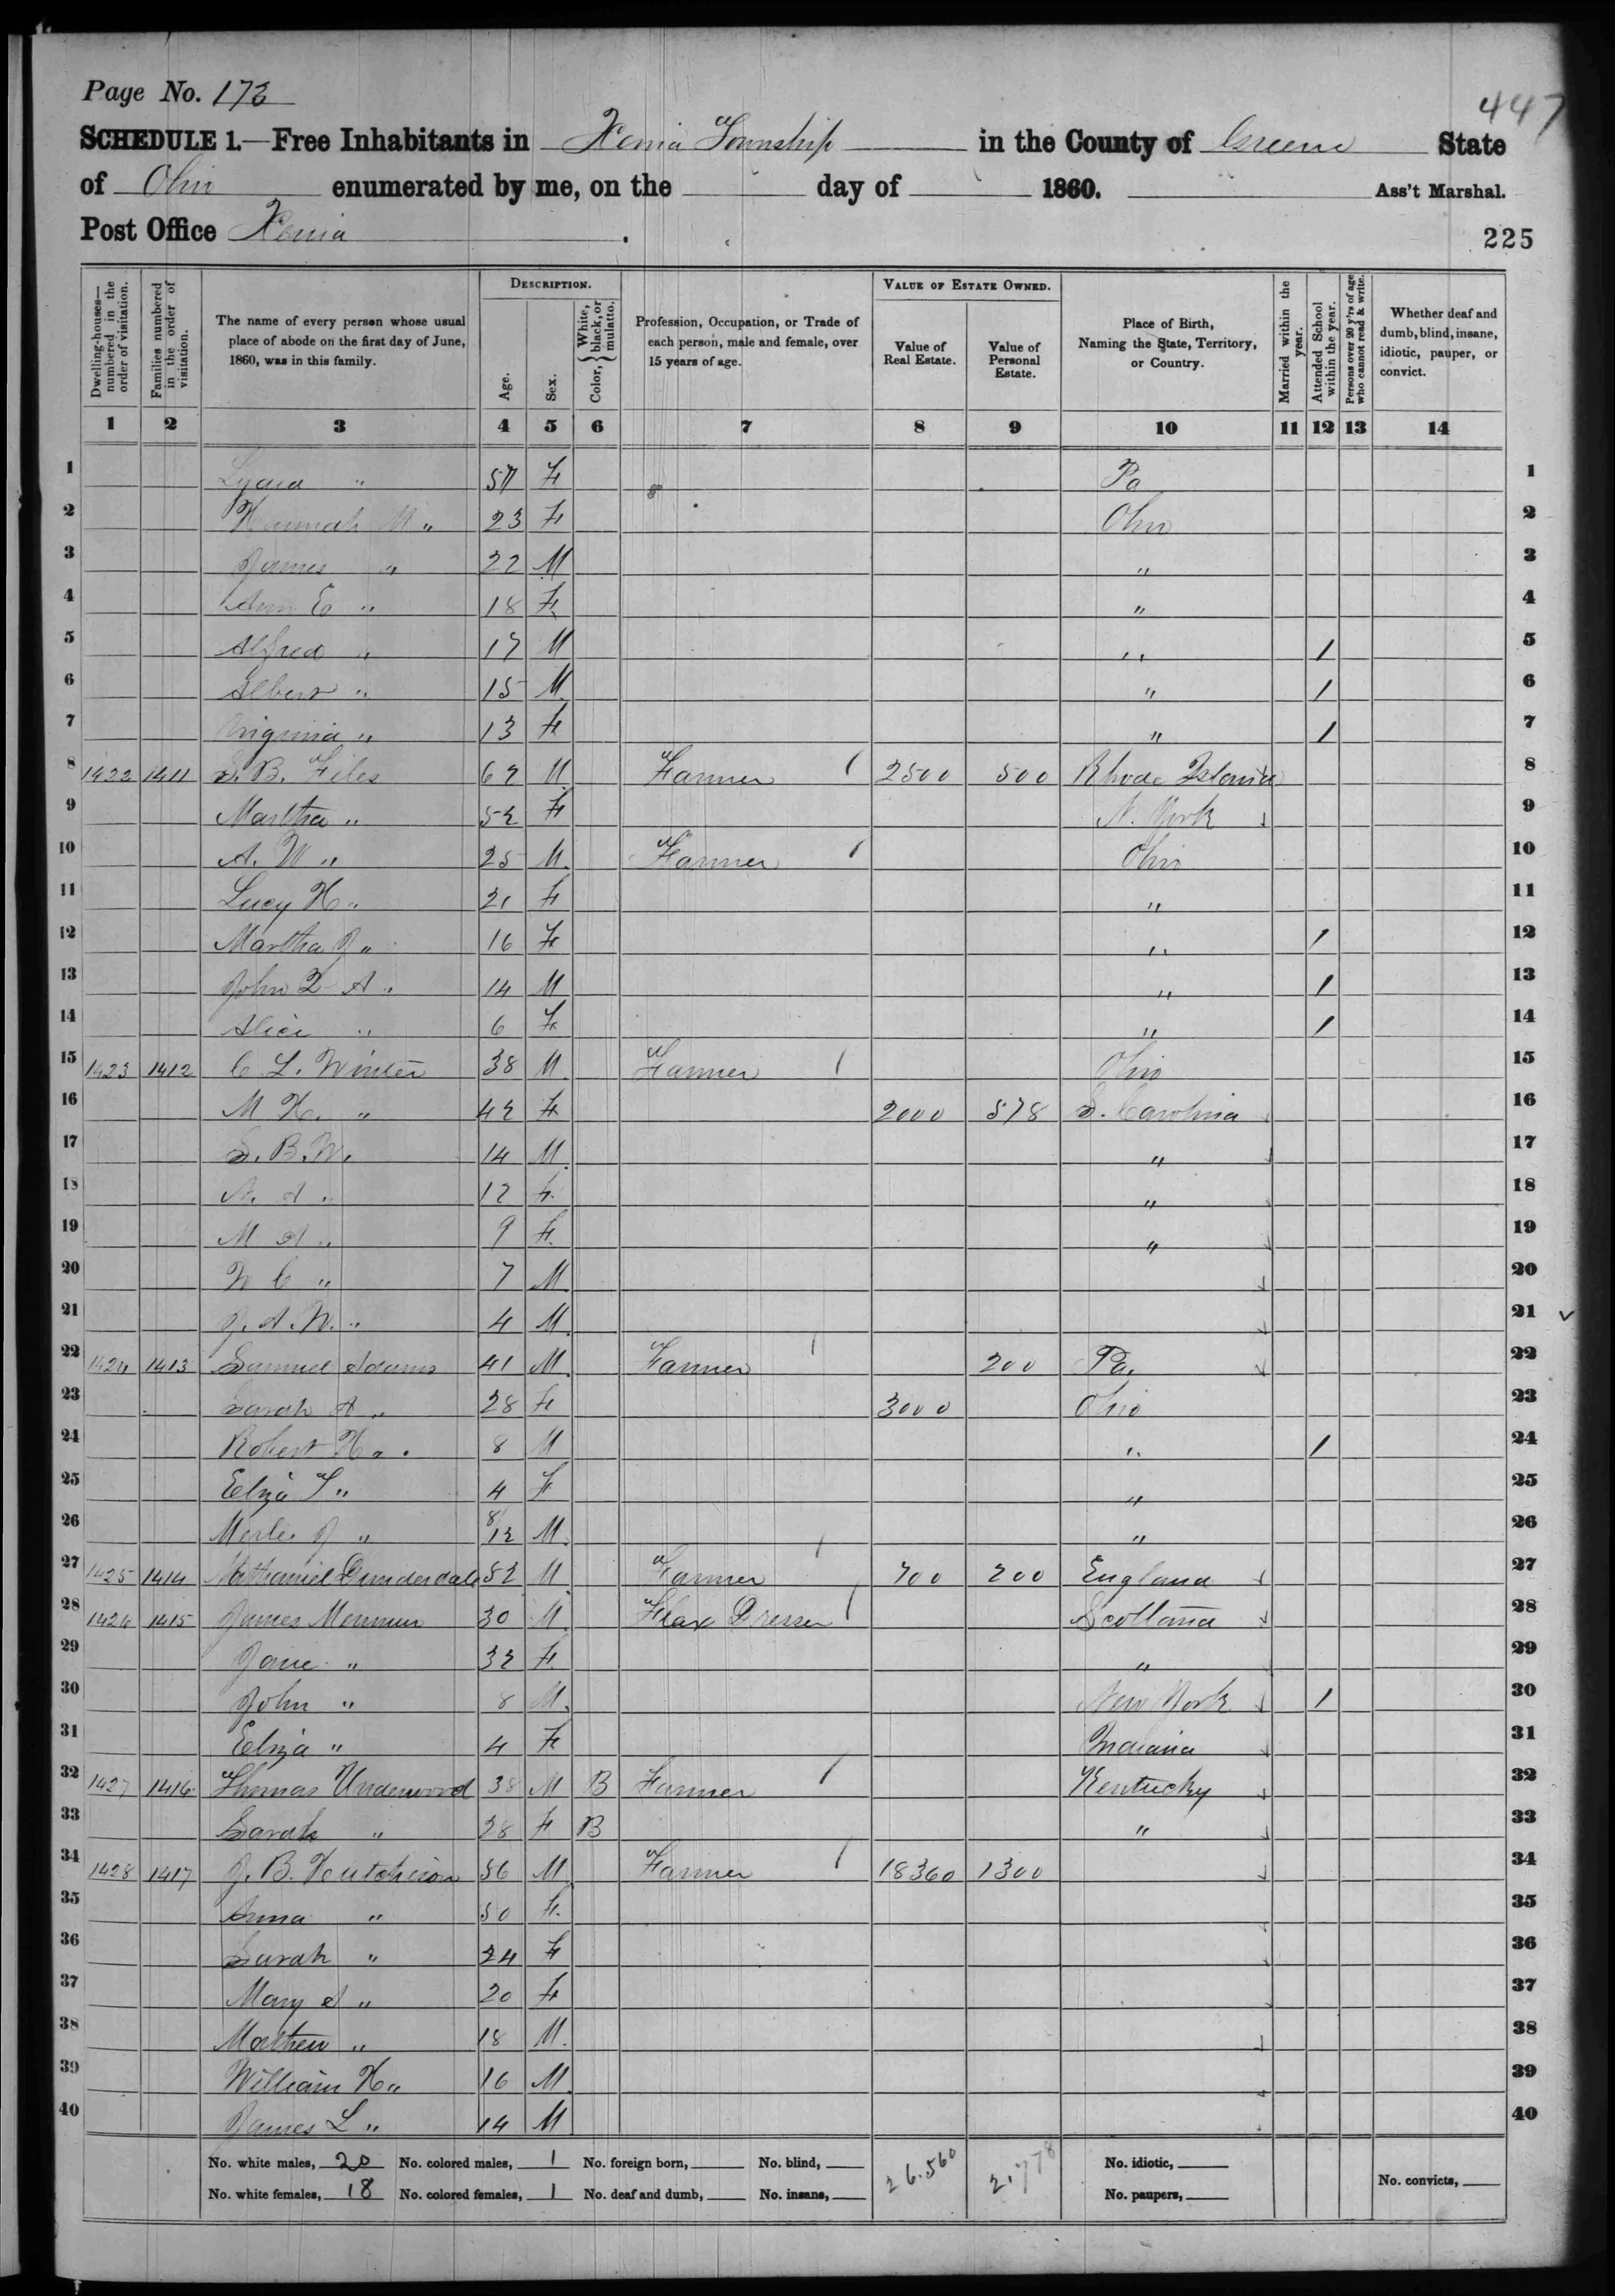 Page No. 173
447
SCHEDULE 1.—Free Inhabitants in Xenia Township in the County of Greene State
of Ohio enumerated by me, on the day of 1860. Ass't Marshal.
Post Office Xenia .
225
Dwelling-houses—numbered in the order of visitation. Families numbered in the order of visitation. The name of every person whose usual place of abode on the first day of June, 1860, was in this family. DESCRIPTION. Age. Sex. Color, { White, black, or mulatto. Profession, Occupation, or Trade of each person, male and female, over 15 years of age. VALUE OF ESTATE OWNED. Value of Real Estate. Value of Personal Estate. Place of Birth, Naming the State, Territory, or Country. Married within the year. Attended School within the year. Persons over 20 y'rs of age who cannot read & write. Whether deaf and dumb, blind, insane, idiotic, pauper, or convict.
1 2 3 4 5 6 7 8 9 10 11 12 13 14
1 Lydia " 57 F Pa 1
2 Hannah M " 23 F Ohio 2
3 James " 22 M " 3
4 Ann E " 18 F " 4
5 Alfred " 17 M " / 5
6 Albert " 15 M " / 6
7 Virginia " 13 F " / 7
8 1422 1411 S. B. Files 62 M Farmer / 2500 500 Rhode Island 8
9 Martha " 52 F N. York 9
10 A. W " 25 M. Farmer / Ohio 10
11 Lucy H " 21 F " 11
12 Martha J " 16 F " / 12
13 John Q A " 14 M " / 13
14 Alice " 6 F " / 14
15 1423 1412 C. L. Winter 38 M. Farmer / Ohio 15
16 M H. " 42 F 2000 578 S. Carolina 16
17 S. B. W. 14 M. " 17
18 A " 12 F. " 18
19 M A " 9 F. " 19
20 W C " 7 M 20
21 J. A. W. " 4 M. 21 v
22 1424 1413 Samuel Adams 41 M. Farmer / 200 Pa. 22
23 Sarah A " 28 F 3000 Ohio 23
24 Robert H " . 8 M " / 24
25 Eliza " 4 F " 25
26 J " 8/12 M. " 26
27 1425 1414 Nathaniel 52 M Farmer / 700 200 England 27
28 1426 1415 James 30 M. Flax Dresser / Scotland 28
29 Jane " 32 F. " 29
30 John " 8 M. New York / 30
31 Eliza " 4 F Indiana 31
32 1427 1416 Thomas Underwood 38 M B Farmer / Kentucky 32
33 Sarah " 28 F B " 33
34 1428 1417 J. B. Hutchison 56 M. Farmer / 18360 1300 34
35 Anna " 50 F. 35
36 Sarah " 24 F 36
37 Mary A " 20 F 37
38 Mathew " 18 M. 38
39 William H " 16 M. 39
40 James L " 14 M 40
No. white males, 20 No. colored males, 1 No. foreign born, No. blind, 26.560 2,778 No. idiotic,
No. white females, 18 No. colored females, 1 No. deaf and dumb, No. insane, No. paupers, No. convicts,